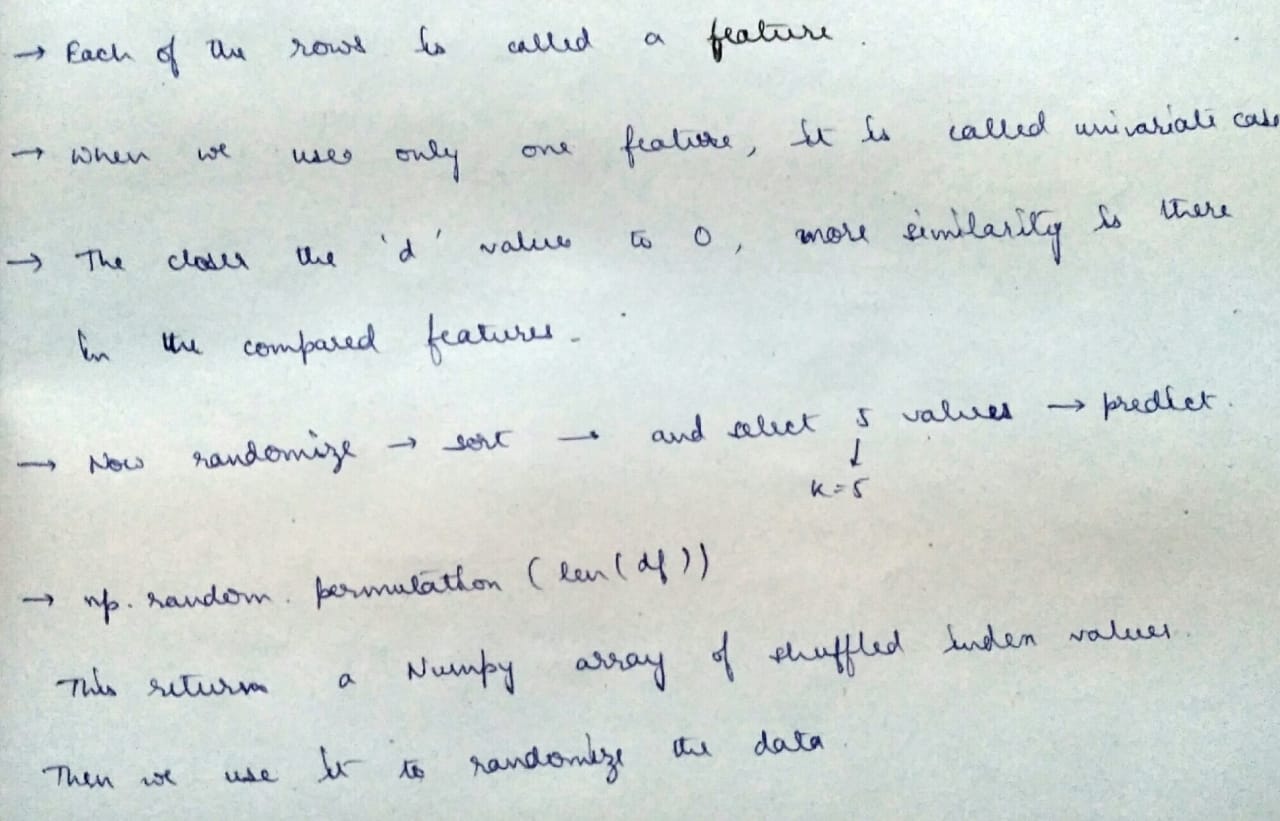 → Each of the rows is called a feature.
→ When we uses only one feature, it is called univariate case
→ The closer the 'd' value to 0, more similarity is there
in the compared features.
→ Now randomize → sort → and select 5 values → predict.
↓
k=5
→ np.random.permutation (len(df))
This returns a Numpy array of shuffled index values.
Then we use it to randomize the data.